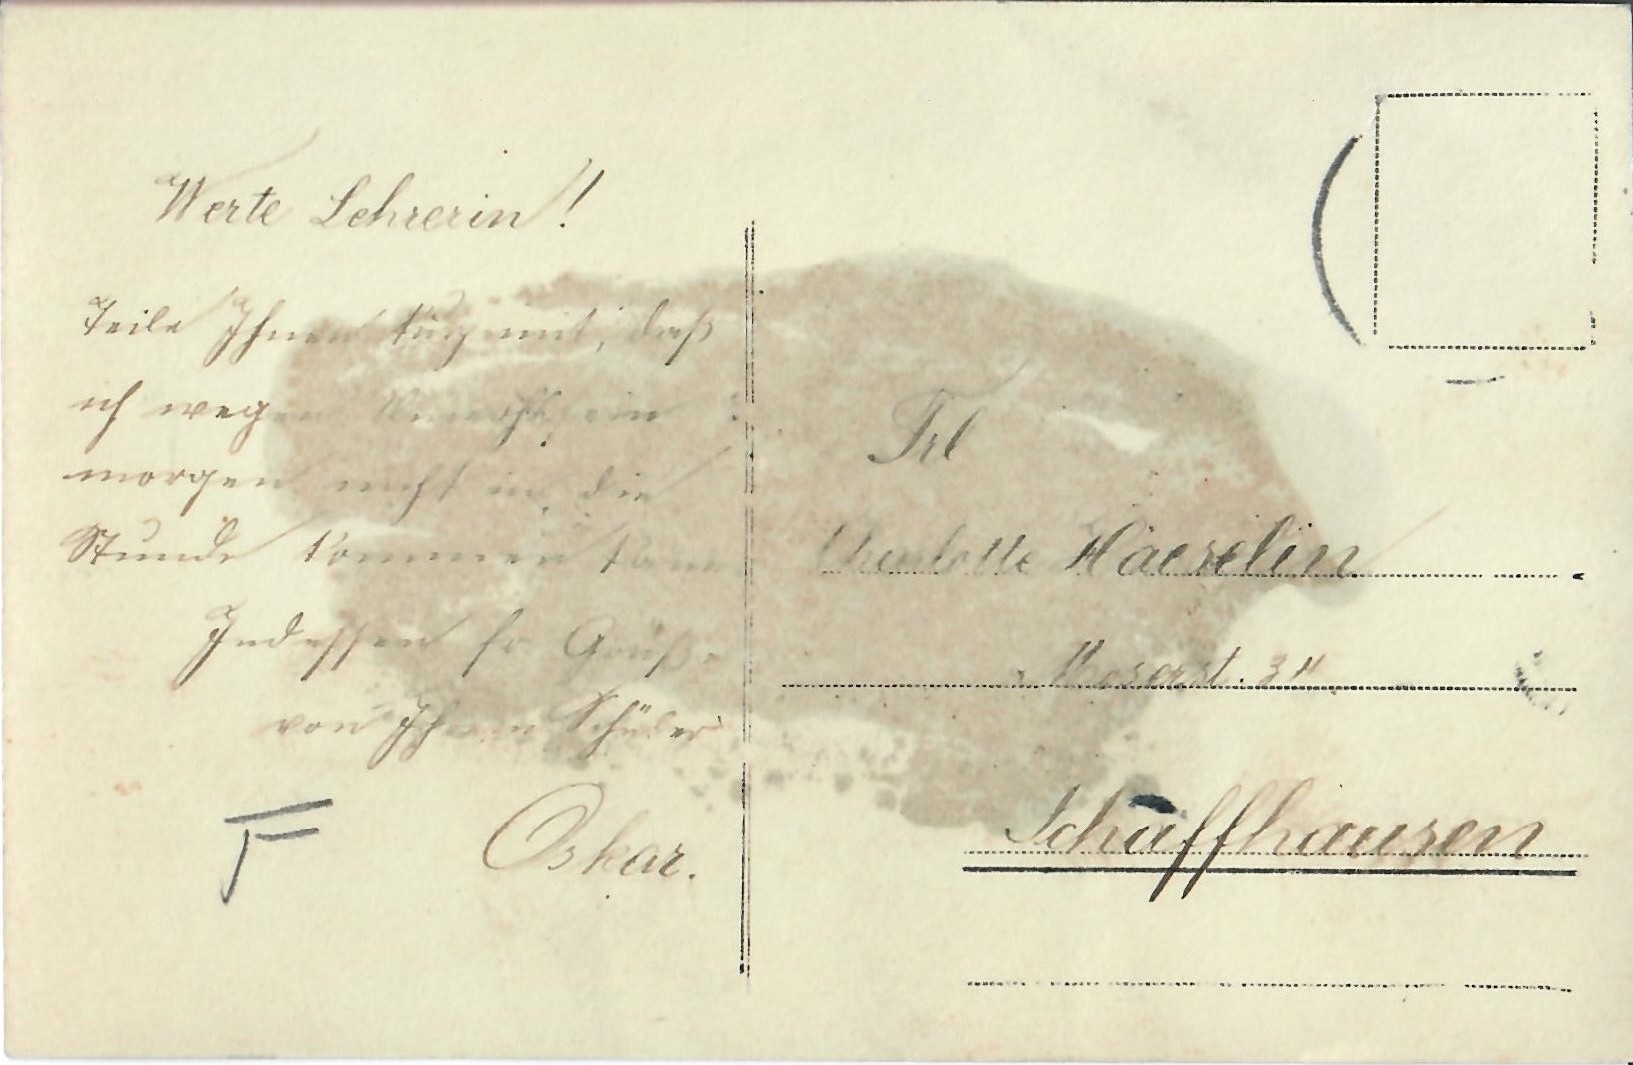 Werte Lehrerin!
Teile Ihnen kurz mit, daß
ich wegen
morgen nicht in die
Stunde kommen kann
Indessen fr Grüße
von Ihrem Schüler
Oskar.
F
Frl
Charlotte Haeselin
Moserst. 34
Schaffhausen